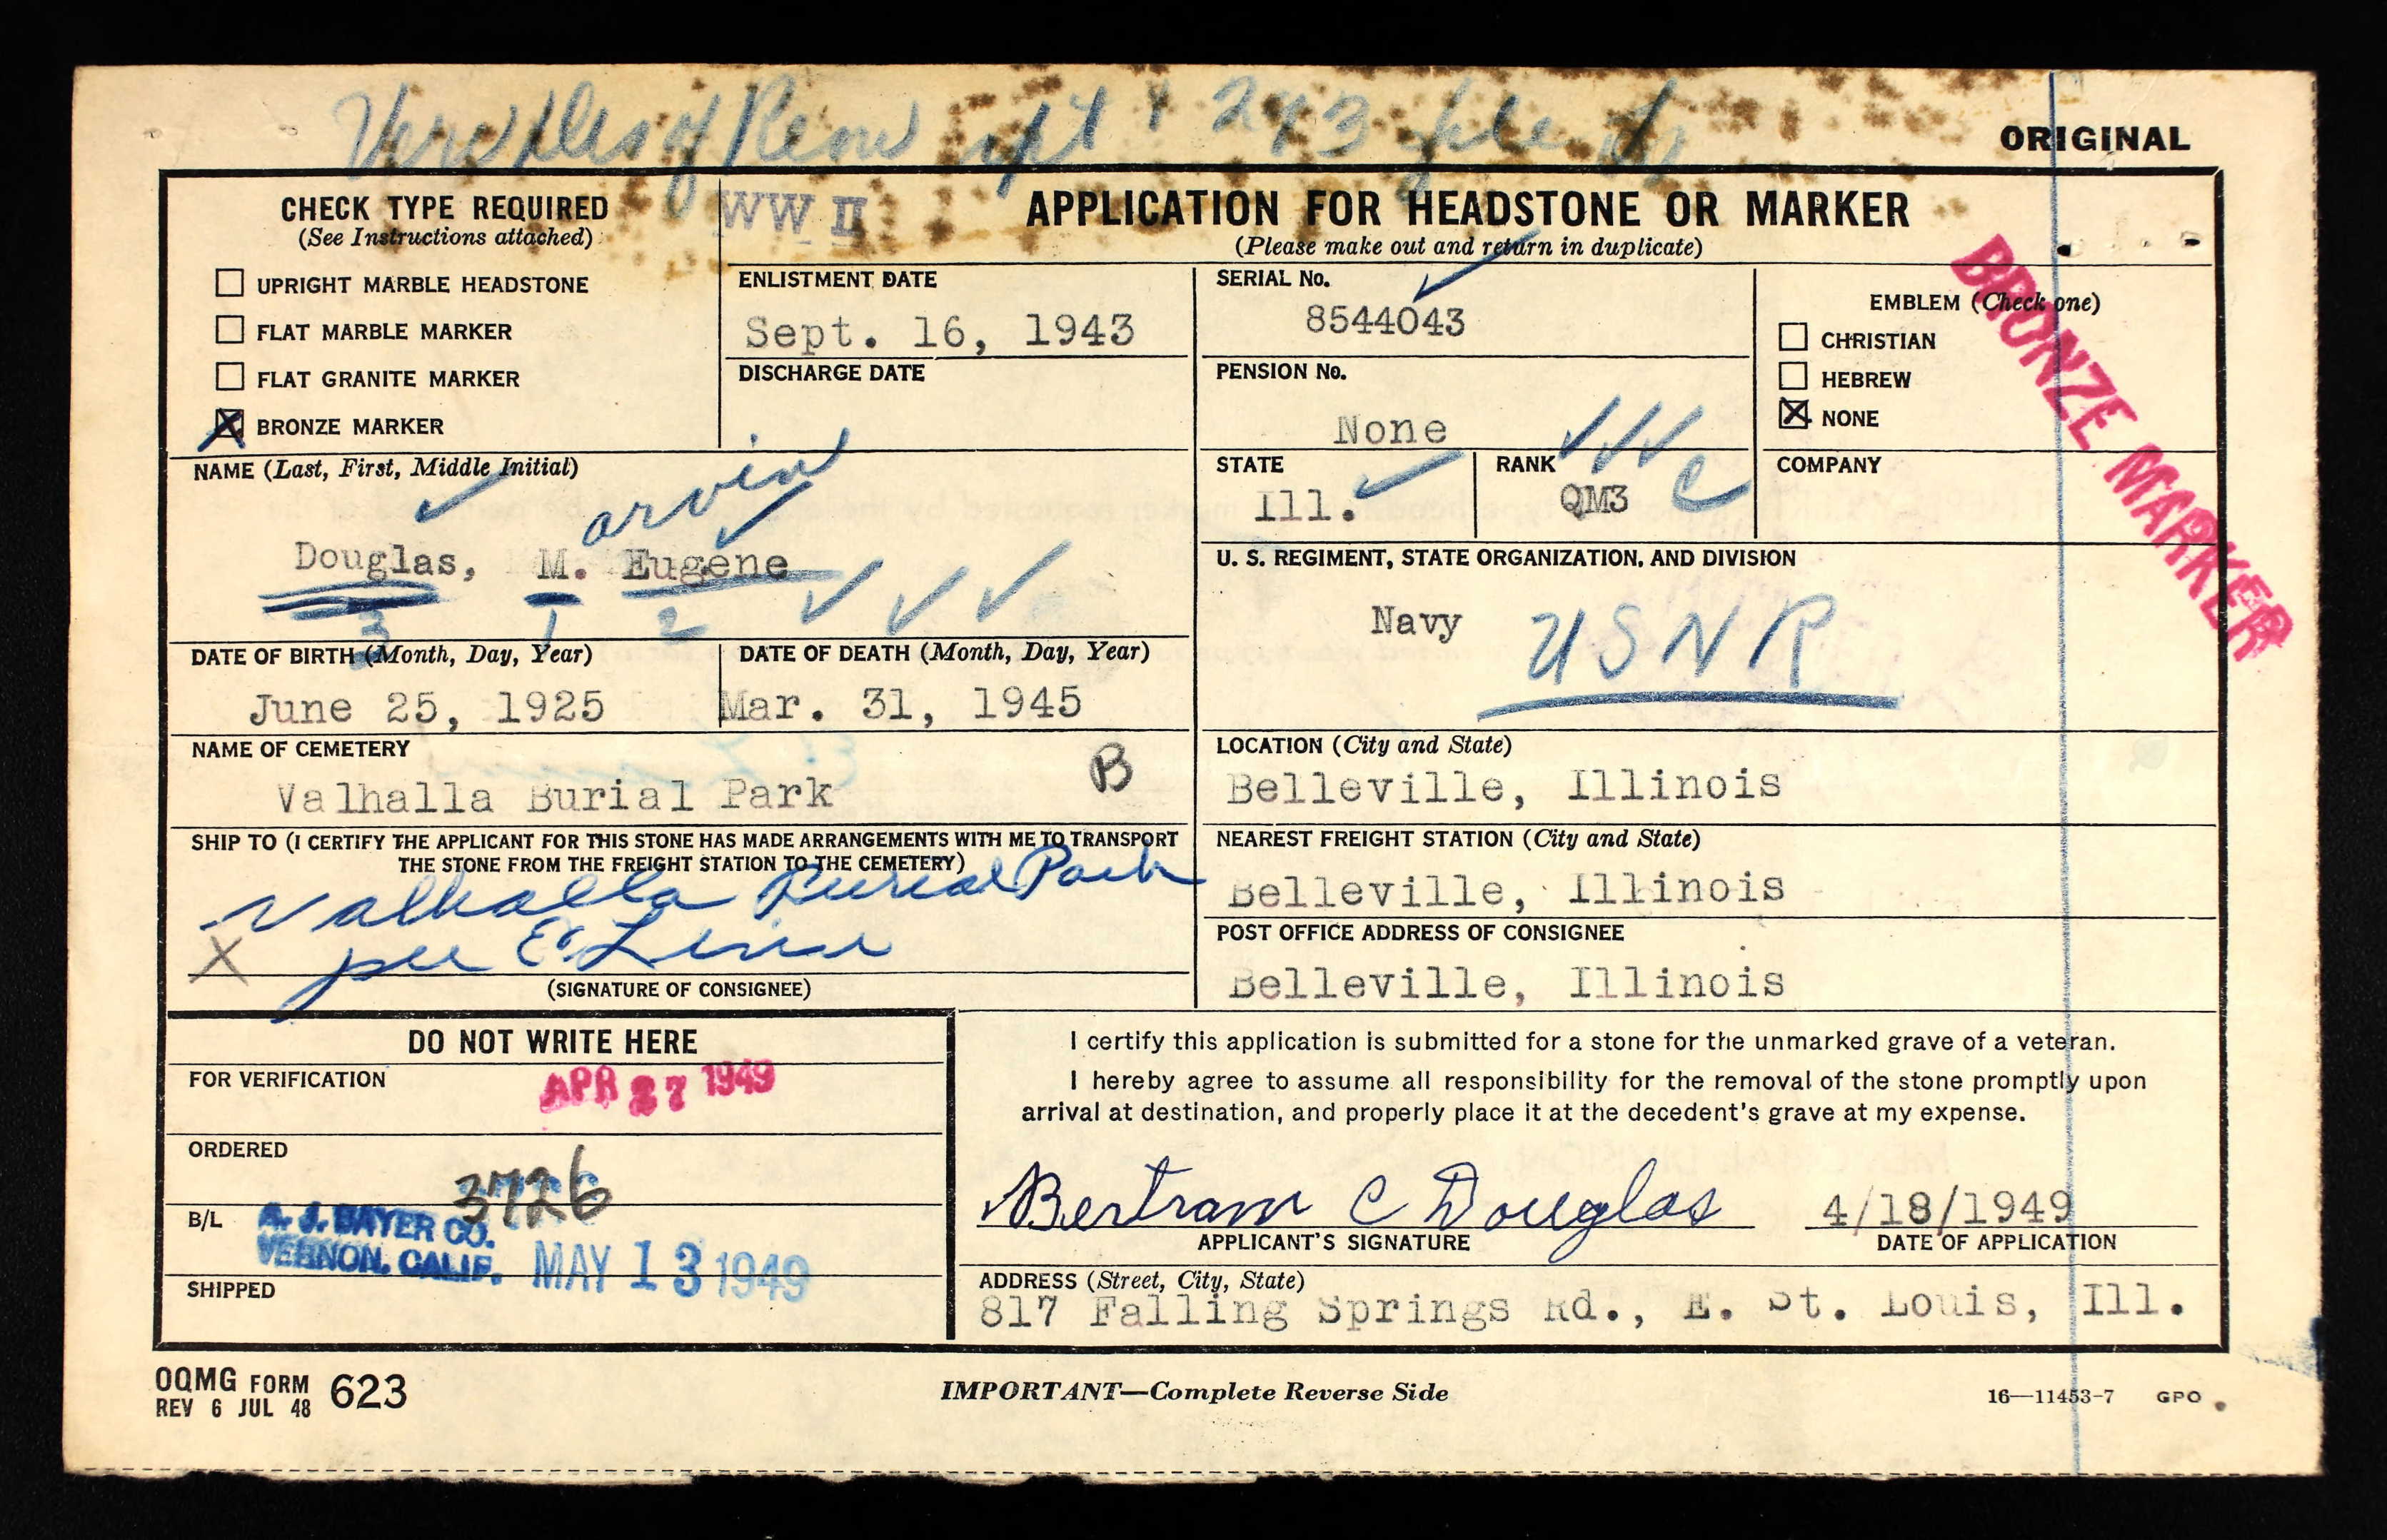 ORIGINAL
CHECK TYPE REQUIRED
(See Instructions attached)
UPRIGHT MARBLE HEADSTONE
FLAT MARBLE MARKER
FLAT GRANITE MARKER
X BRONZE MARKER
WW II
APPLICATION FOR HEADSTONE OR MARKER
(Please make out and return in duplicate)
ENLISTMENT DATE
Sept. 16, 1943
DISCHARGE DATE
SERIAL No.
8544043
PENSION No.
None
EMBLEM (Check one)
CHRISTIAN
HEBREW
X NONE
BRONZE MARKER
NAME (Last, First, Middle Initial)
arvin
Douglas, M. Eugene
3 1 2
STATE
Ill.
RANK
QM3 C
COMPANY
U. S. REGIMENT, STATE ORGANIZATION, AND DIVISION
Navy USNR
DATE OF BIRTH (Month, Day, Year)
June 25, 1925
DATE OF DEATH (Month, Day, Year)
Mar. 31, 1945
NAME OF CEMETERY
Valhalla Burial Park B
LOCATION (City and State)
Belleville, Illinois
SHIP TO (I CERTIFY THE APPLICANT FOR THIS STONE HAS MADE ARRANGEMENTS WITH ME TO TRANSPORT
THE STONE FROM THE FREIGHT STATION TO THE CEMETERY)
Valhalla Burial Park
X per E
(SIGNATURE OF CONSIGNEE)
NEAREST FREIGHT STATION (City and State)
Belleville, Illinois
POST OFFICE ADDRESS OF CONSIGNEE
Belleville, Illinois
DO NOT WRITE HERE
FOR VERIFICATION
APR 27 1949
ORDERED
3726
B/L
A. J. BAYER CO.
VERNON, CALIF. MAY 13 1949
SHIPPED
I certify this application is submitted for a stone for the unmarked grave of a veteran.
I hereby agree to assume all responsibility for the removal of the stone promptly upon
arrival at destination, and properly place it at the decedent's grave at my expense.
Bertram C Douglas 4/18/1949
APPLICANT'S SIGNATURE DATE OF APPLICATION
ADDRESS (Street, City, State)
817 Falling Springs Rd., E. St. Louis, Ill.
OQMG FORM 623
REV 6 JUL 48
IMPORTANT—Complete Reverse Side
16—11453-7 GPO